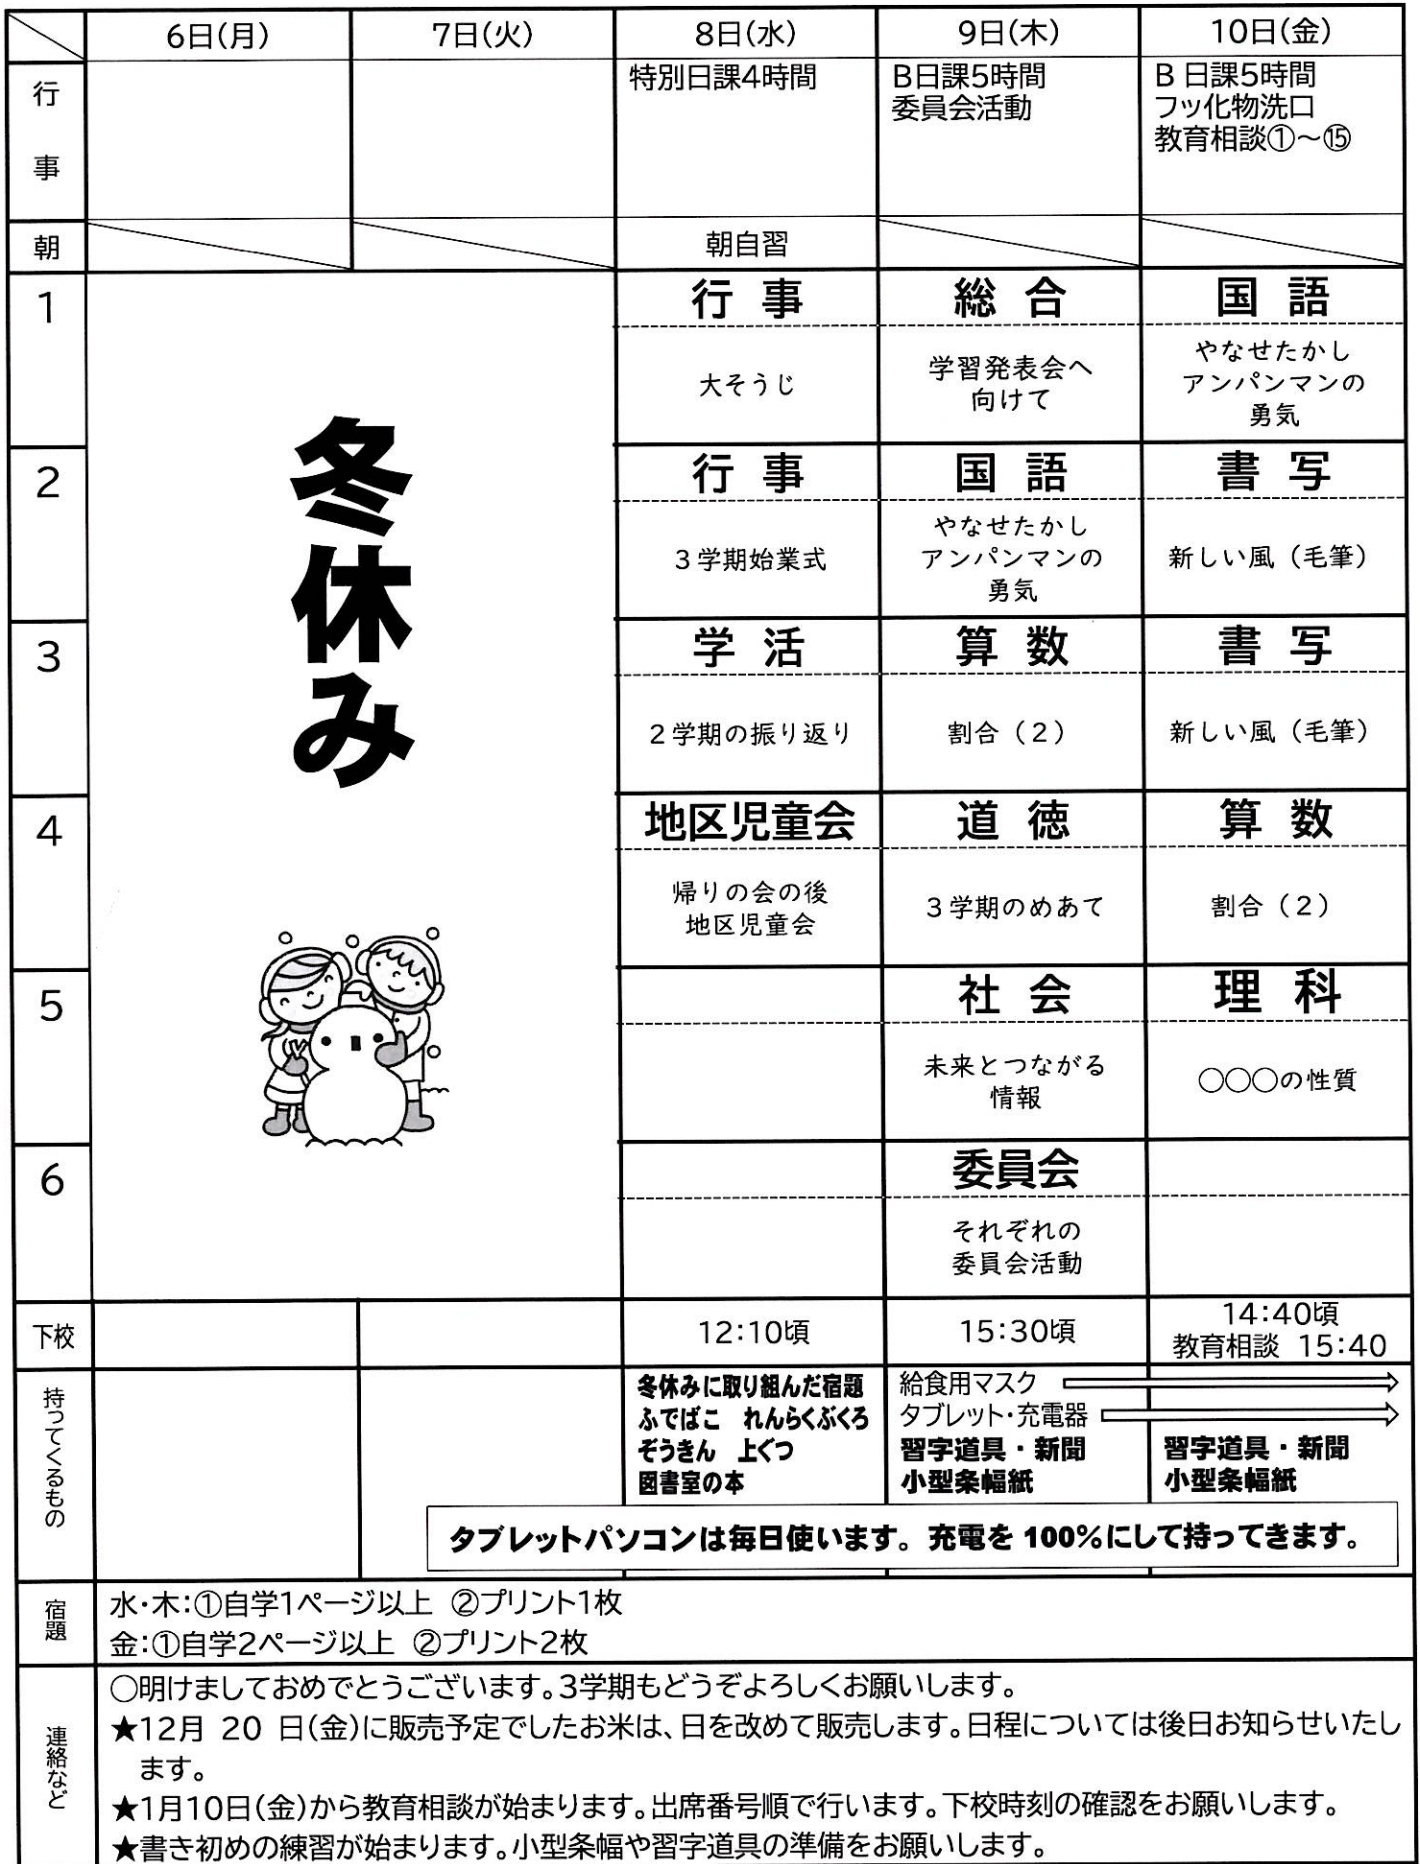 6日(月)
7日(火)
8日(水)
9日(木)
10日(金)
行事
特別日課4時間
B日課5時間
委員会活動
B日課5時間
フッ化物洗口
教育相談①～⑮
朝
朝自習
冬休み
1
行事
大そうじ
総合
学習発表会へ
向けて
国語
やなせたかし
アンパンマンの
勇気
2
行事
3学期始業式
国語
やなせたかし
アンパンマンの
勇気
書写
新しい風（毛筆）
3
学活
2学期の振り返り
算数
割合（2）
書写
新しい風（毛筆）
4
地区児童会
帰りの会の後
地区児童会
道徳
3学期のめあて
算数
割合（2）
5
社会
未来とつながる
情報
理科
○○○の性質
6
委員会
それぞれの
委員会活動
下校
12:10頃
15:30頃
14:40頃
教育相談 15:40
持ってくるもの
冬休みに取り組んだ宿題
ふでばこ れんらくぶくろ
ぞうきん 上ぐつ
図書室の本
給食用マスク
タブレット・充電器
習字道具・新聞
小型条幅紙
習字道具・新聞
小型条幅紙
タブレットパソコンは毎日使います。充電を100%にして持ってきます。
宿題
水・木:①自学1ページ以上 ②プリント1枚
金:①自学2ページ以上 ②プリント2枚
連絡など
○明けましておめでとうございます。3学期もどうぞよろしくお願いします。
★12月 20 日(金)に販売予定でしたお米は、日を改めて販売します。日程については後日お知らせいたし
ます。
★1月10日(金)から教育相談が始まります。出席番号順で行います。下校時刻の確認をお願いします。
★書き初めの練習が始まります。小型条幅や習字道具の準備をお願いします。